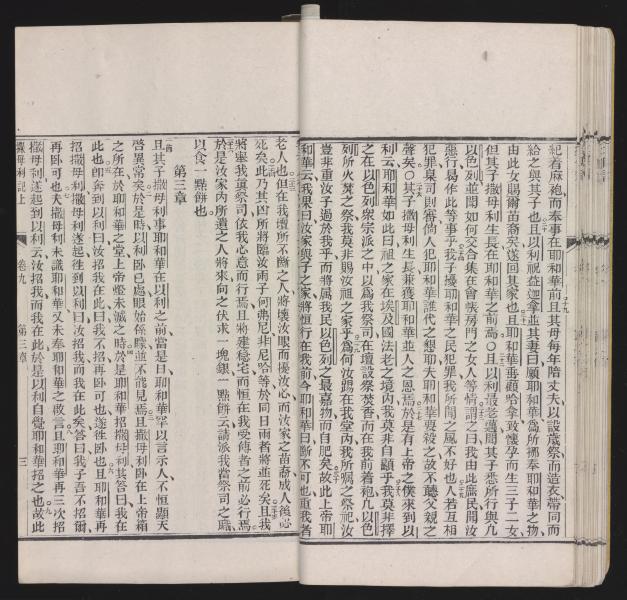 紀着麻袍而奉事在耶和華前且其母每年陪丈夫以設歲祭而造衣帶同而
給之與其子也且以利祝益迦拿並其妻曰願耶和華爲所挪奉耶和華之物
由此女賜爾苗裔矣遂回其家也且耶和華垂顧哈拿致懷孕而生三子二女
但其子撒母利生長在耶和華之前焉○且以利最老邁聞其子悉所行與凢
以色列並聞如何交合集在會帳房門之女人等情謂之曰我由此庶民聞汝
惡行曷作此等事乎我子擾耶和華之民犯罪我所聞之風不好也人若互相
犯罪臬司則審倘人犯耶和華誰代之懇耶夫耶和華要殺之故不聽父親之
聲矣○其子撒母利生長兼獲耶和華並人之恩焉於是有上帝之僕來到以
利云耶和華如此曰祖之家在埃及國法老之境內我莫非自顯乎我莫非擇
之在以色列衆宗派之中以爲我祭司在壇設祭焚香而在我前着袍凢以色
列所火焚之祭我莫非賜汝祖之家乎爲何汝踢在我堂內我所囑之祭祀汝
豈非重汝子過於我乎而將屬我民以色列之最嘉物而自肥矣故此上帝耶
和華曰我果曰汝家與子之家將恒行在我前今耶和華曰斷不可也重我者
老人也但在我壇所不斷之人將壞汝眼而擾汝心而汝家之苗裔成人後必
死矣此乃其凶所將臨汝兩子何弗尼非尼哈等於同日兩者將並死矣且我
將舉我眞祭司依我心意而行焉且將建穩宅而恒在我受傅者之前必行焉
於是汝家內所遺之人將來向之伏求一塊銀一點餅云請派我當祭司之職
以食一點餅也
第三章
且其子撒母利事耶和華在以利之前當是日耶和華罕以言示人不恒顯天
啓異常矣於是時以利卧已處眼始係矇並不能見焉且撒母利卧在上帝箱
之所在於耶和華之堂上帝燈未滅之時於是耶和華招撒母利其答曰我在
此也卽奔到以利曰汝招我在此曰我不招再卧可也遂徃卧也且耶和華再
招撒母利撒母利遂起徃到以利曰汝招我而我在此矣答曰我子吾不招爾
再卧可也夫撒母利未識耶和華又未奉耶和華之啟言且耶和華再三次招
撒母利遂起到以利云汝招我而我在此於是以利自覺耶和華招之也故此
撒母利記上
卷九
第三章
三